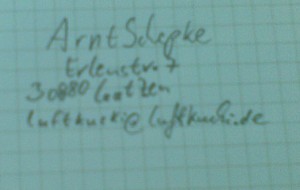 Arnt Schepke
Erlenstr. 7
30880 Laatzen
luftkuski@luftkuski.de